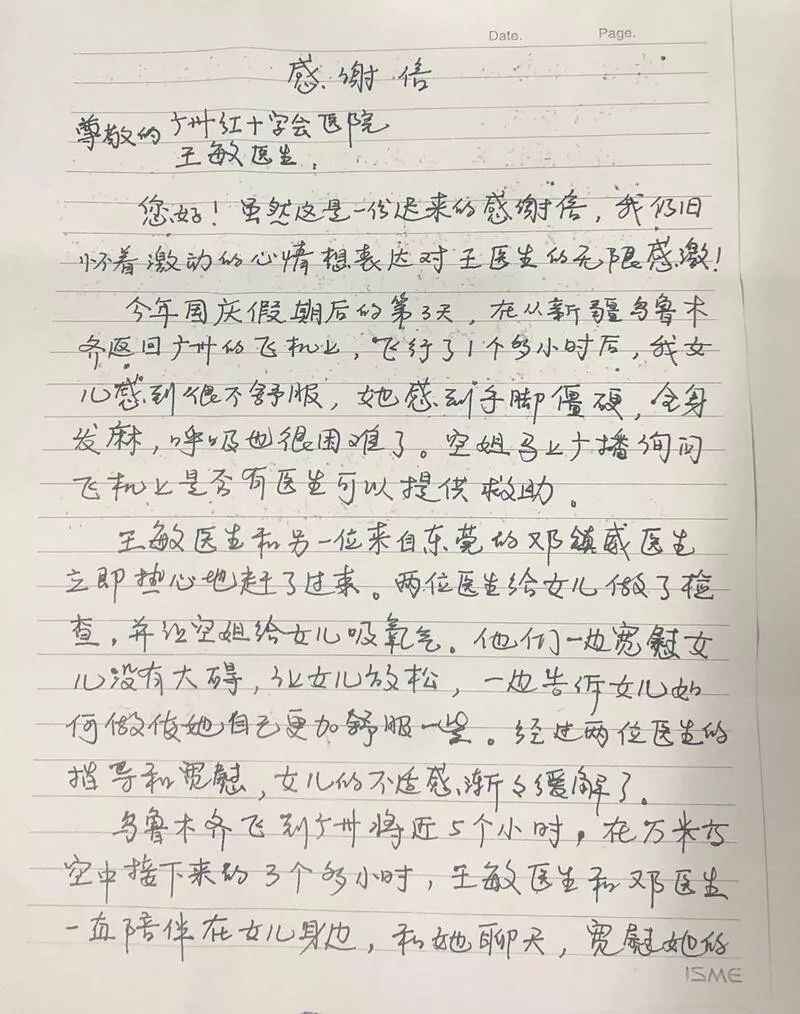 Date.
Page.
感谢信
尊敬的广州红十字会医院
王敏医生，
您好！虽然这是一份迟来的感谢信，我仍旧
怀着激动的心情想表达对王医生的无限感激！
今年国庆假期后的第3天，在从新疆乌鲁木
齐返回广州的飞机上，飞行了1个多小时后，我女
儿感到很不舒服，她感到手脚僵硬，全身
发麻，呼吸也很困难了。空姐马上广播询问
飞机上是否有医生可以提供救助。
王敏医生和另一位来自东莞的邓镇威医生
立即热心地赶了过来。两位医生给女儿做了检
查，并让空姐给女儿吸氧气。他们一边宽慰女
儿没有大碍，让女儿放松，一边告诉女儿如
何做使她自己更加舒服一些。经过两位医生的
指导和宽慰，女儿的不适感渐渐缓解了。
乌鲁木齐飞到广州将近5个小时，在万米高
空中接下来的3个多小时，王敏医生和邓医生
一直陪伴在女儿身边，和她聊天，宽慰她的
ISME